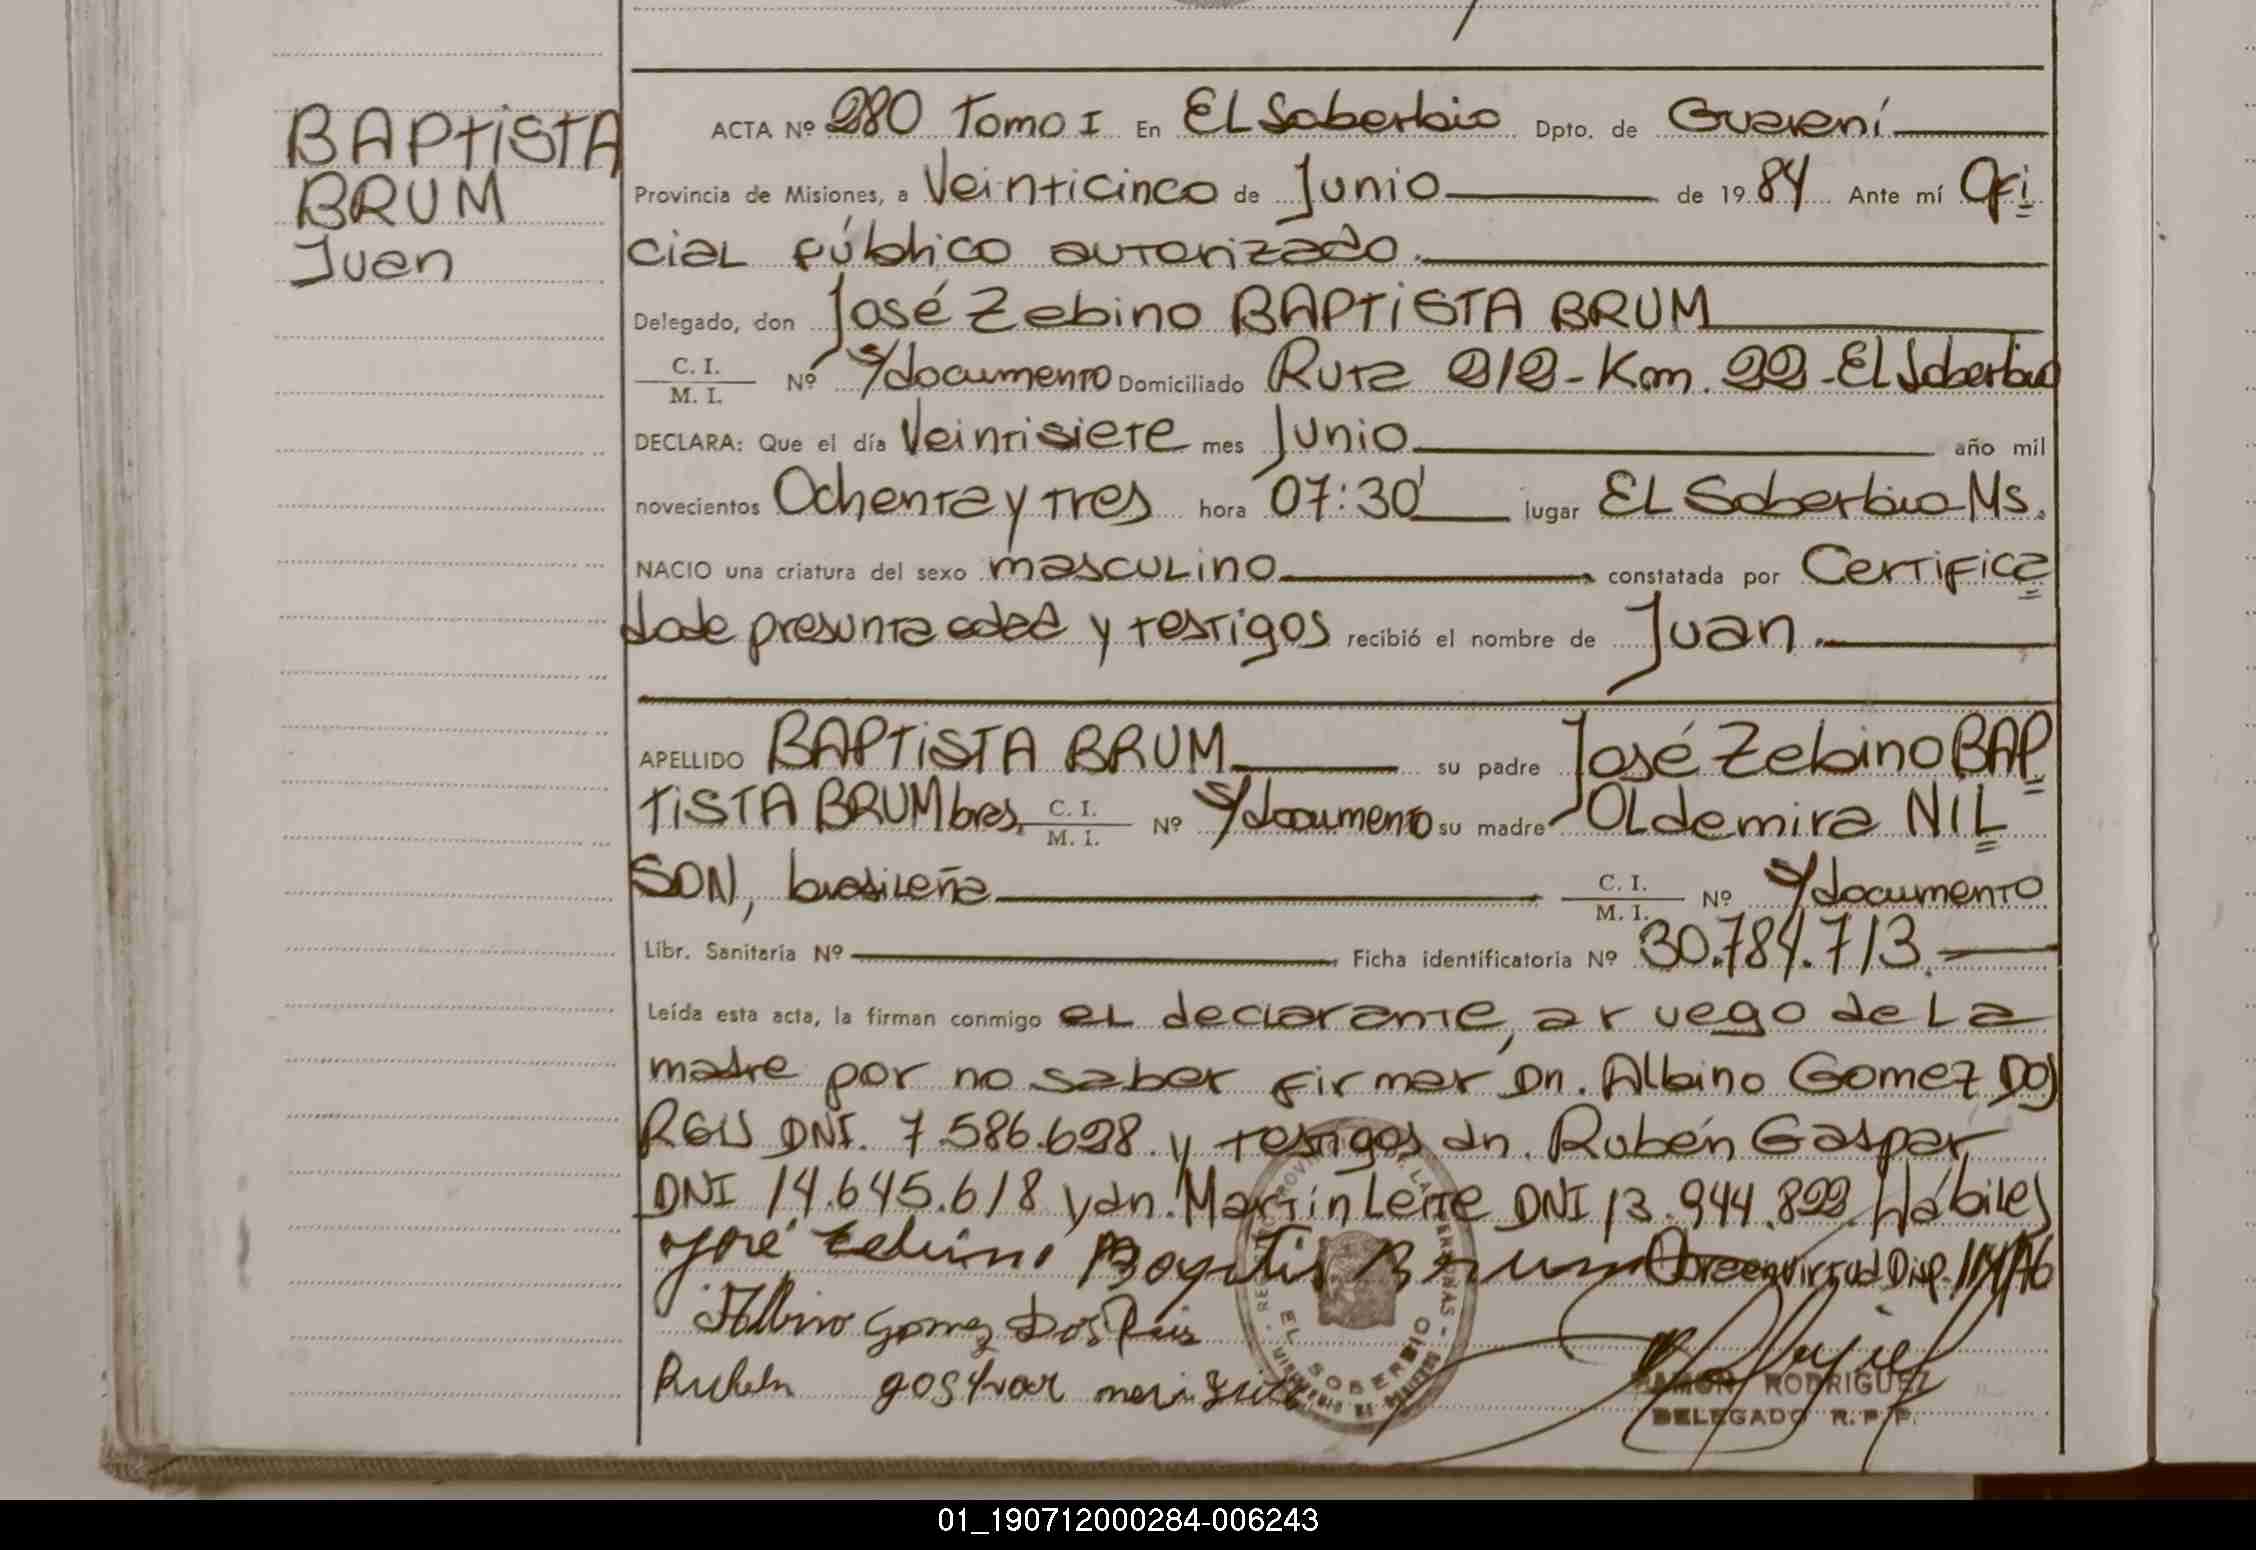 BAPTISTA
BRUM
Juan
ACTA Nº 280 Tomo I En EL Soberbio Dpto. de Guaraní
Provincia de Misiones, a Veinticinco de Junio de 1984 Ante mí Ofi
cial público autorizado.
Delegado, don José Zebino BAPTISTA BRUM
C. I. / M. I. Nº s/documento Domiciliado Ruta 212 - Km. 22 - El Soberbio
DECLARA: Que el día Veintisiete mes Junio año mil
novecientos Ochenta y tres hora 07:30' lugar EL Soberbio Ms.
NACIO una criatura del sexo masculino constatada por Certifica
do de presunta edad y testigos recibió el nombre de Juan.
APELLIDO BAPTISTA BRUM su padre José Zebino BAP
TISTA BRUM bres. C. I. / M. I. Nº s/documento su madre Oldemira NIL
SON, brasileña C. I. / M. I. Nº s/documento
Libr. Sanitaria Nº Ficha identificatoria Nº 30.784.713.
Leída esta acta, la firman conmigo el declarante, a ruego de la
madre por no saber firmar Dn. Albino Gomez Dos
Reis DNI. 7.586.628 y testigos dn. Rubén Gaspar
DNI 14.645.618 y dn. Martín Leite DNI 13.944.822. Hábiles
José Zebino Baptista Brum Obra en virtud Disp. 114/76
Albino Gomez Dos Reis
Ruben gaspar
REGISTRO PROVINCIAL DE LAS PERSONAS
EL SOBERBIO
MINISTERIO DE
RAMON RODRIGUEZ
DELEGADO R. P. P.
01_190712000284-006243